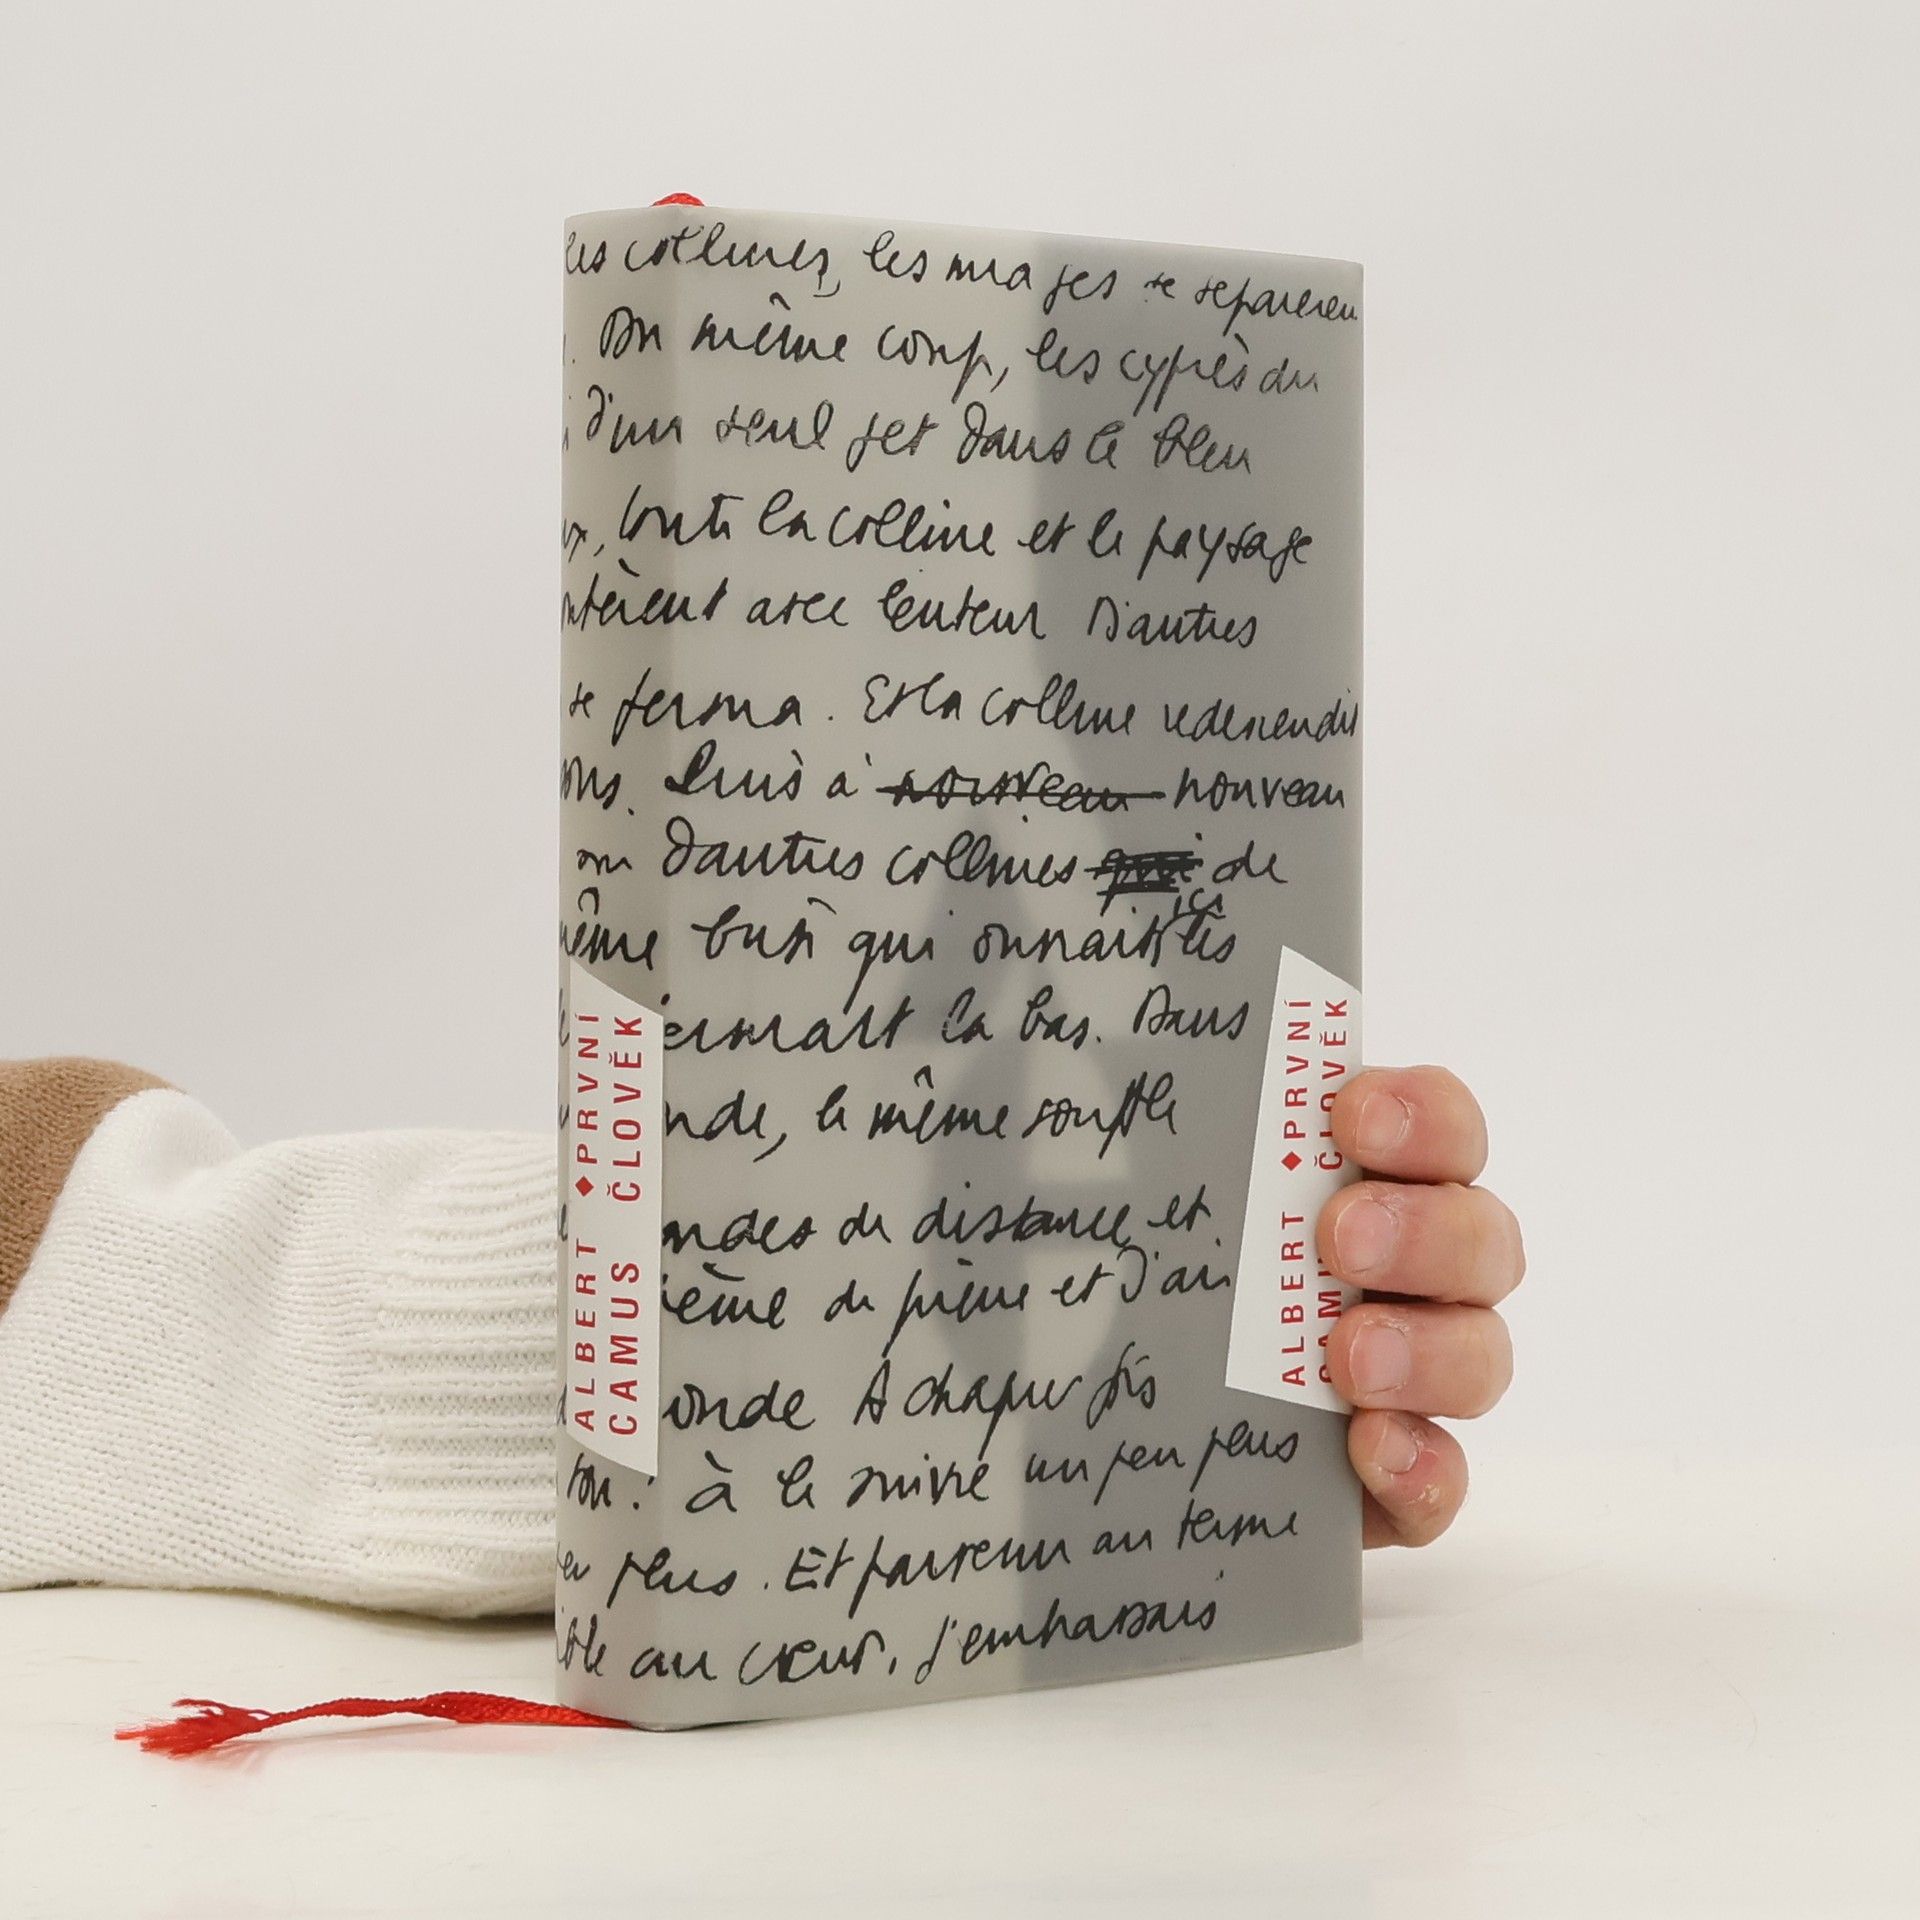 les collines, les nuages se separeren
. Du même coup, les cyprès du
d'un seul jet dans le bleu
ux, toute la colline et le paysage
ntèrent avec lenteur D'autres
se ferma. Et la colline redescendit
ons. Puis à nouveau nouveau
ou d'autres collines qui de
même buti qui ici
ermait la bas. Dans
nde, le même souffle
ndes de distance et
ième de pierre et d'air
onde A chaque fois
son: à le suivre un peu plus
eu plus. Et parvenu au terme
ible au cœur, j'embrassais
ALBERT ◆ PRVNÍ
CAMUS ČLOVĚK
ALBERT ◆ PRVNÍ
CAMU ČLOVĚK